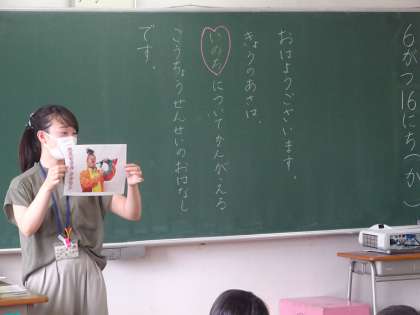 6がつ16にち(か)
おはようございます。
きょうのあさは、
いのちについてかんがえる
こうちょうせんせいのおはなし
です。